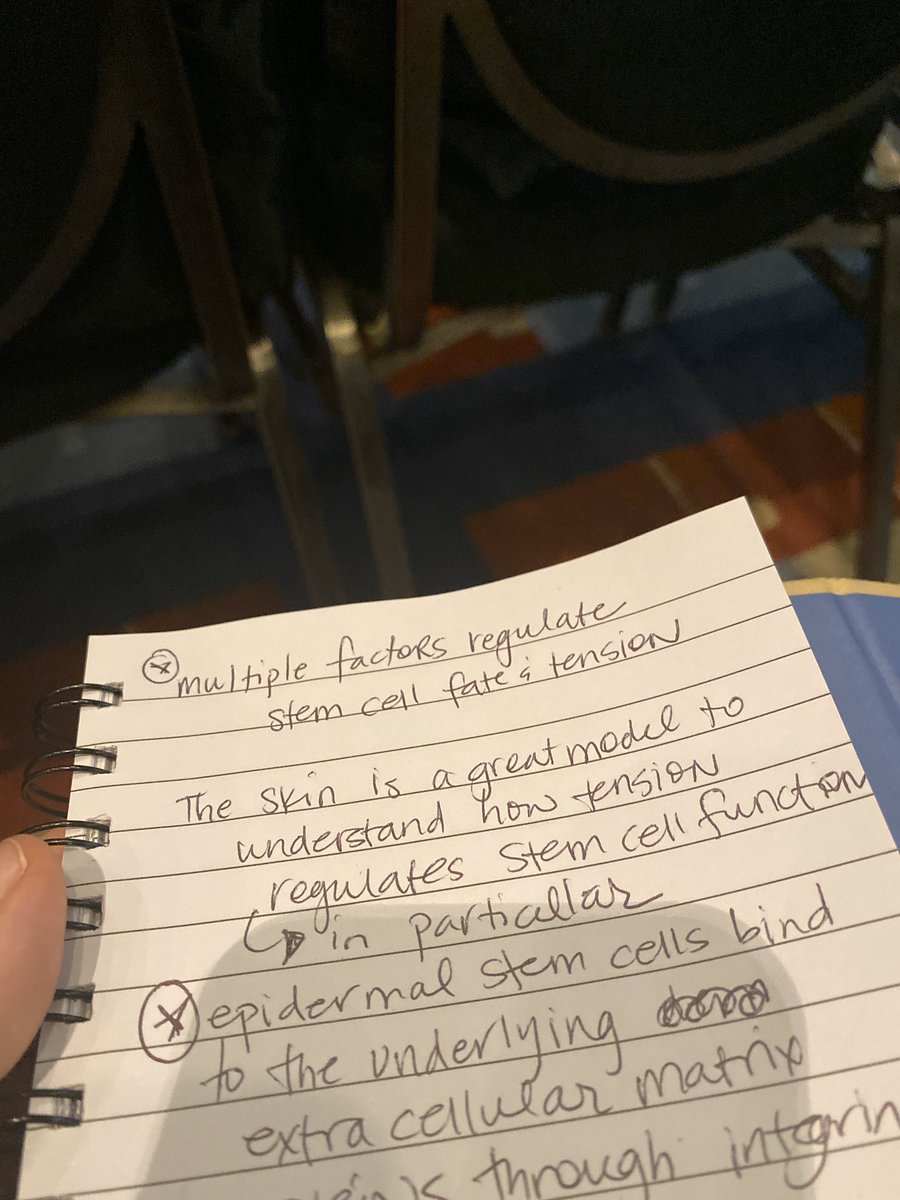 multiple factors regulate
stem cell fate & tension
The skin is a great model to
understand how tension
regulates stem cell function
↳ in particullar
epidermal stem cells bind
to the underlying
extra cellular matrix
through integrin